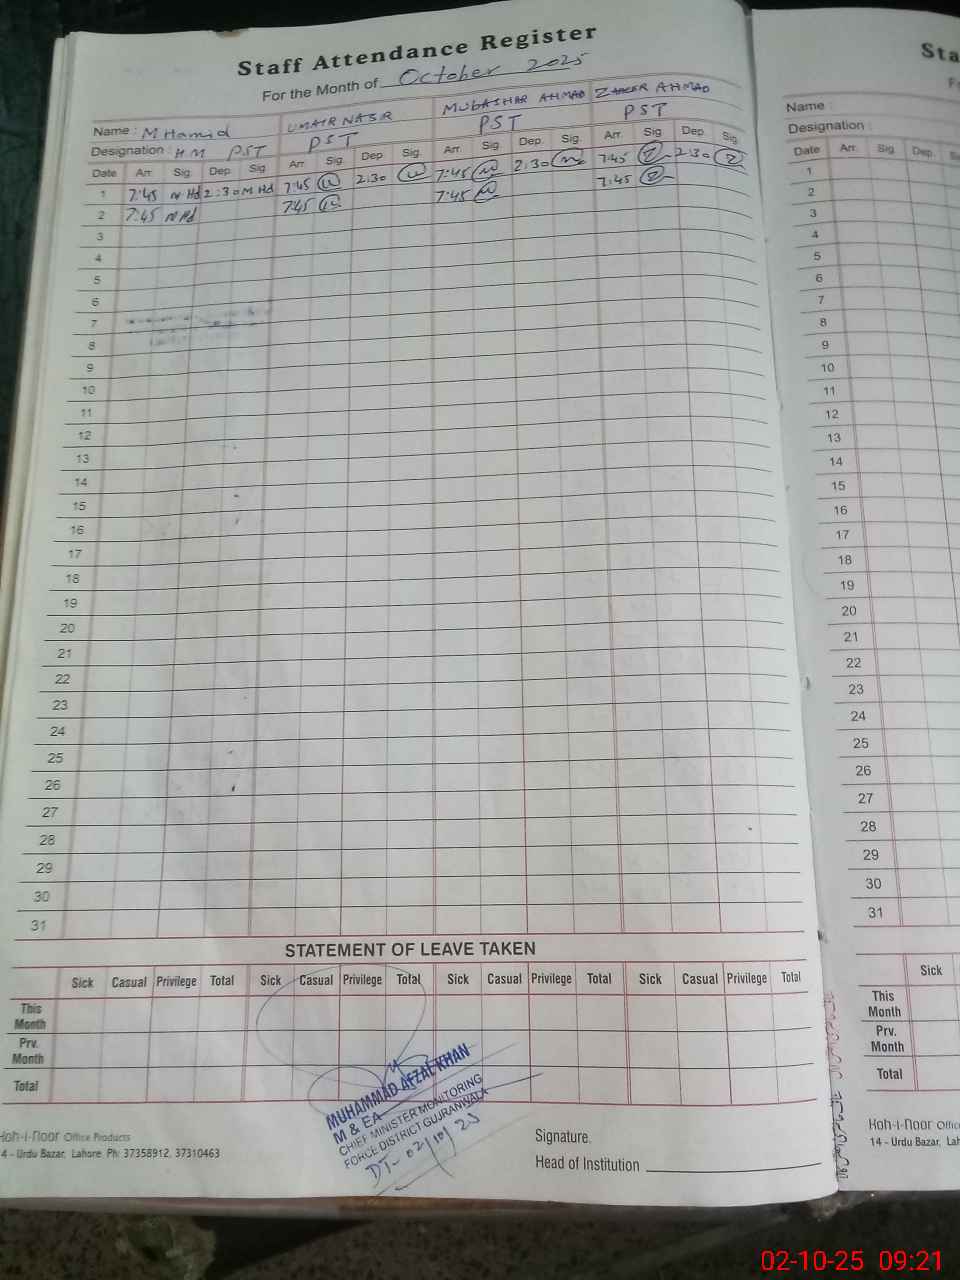 Staff Attendance Register
For the Month of October 2025
Name : M Hamid UMAIR NASIR MUBASHAR AHMAD ZAHEER AHMAD
Designation : HM PST PST PST PST
Date Arr. Sig. Dep. Sig. Arr. Sig. Dep. Sig. Arr. Sig. Dep. Sig. Arr. Sig. Dep. Sig.
1 7:45 M Hd 2:30 M Hd 7:45 2:30 7:45 2:30 7:45 2:30
2 7:45 M Hd 7:45 7:45 7:45
3
4
5
6
7
8
9
10
11
12
13
14
15
16
17
18
19
20
21
22
23
24
25
26
27
28
29
30
31
STATEMENT OF LEAVE TAKEN
Sick Casual Privilege Total Sick Casual Privilege Total Sick Casual Privilege Total Sick Casual Privilege Total
This Month
Prv. Month
Total
MUHAMMAD AFZAL KHAN
M & EA
CHIEF MINISTER MONITORING
FORCE DISTRICT GUJRANWALA
DT- 02/10/25
Koh-i-noor Office Products
14 - Urdu Bazar, Lahore. Ph: 37358912, 37310463
Signature.
Head of Institution
Sta
Name :
Designation :
Date Arr. Sig. Dep. Sig.
1
2
3
4
5
6
7
8
9
10
11
12
13
14
15
16
17
18
19
20
21
22
23
24
25
26
27
28
29
30
31
Sick
This Month
Prv. Month
Total
Koh-i-noor Offic
14 - Urdu Bazar, Lah
02-10-25 09:21